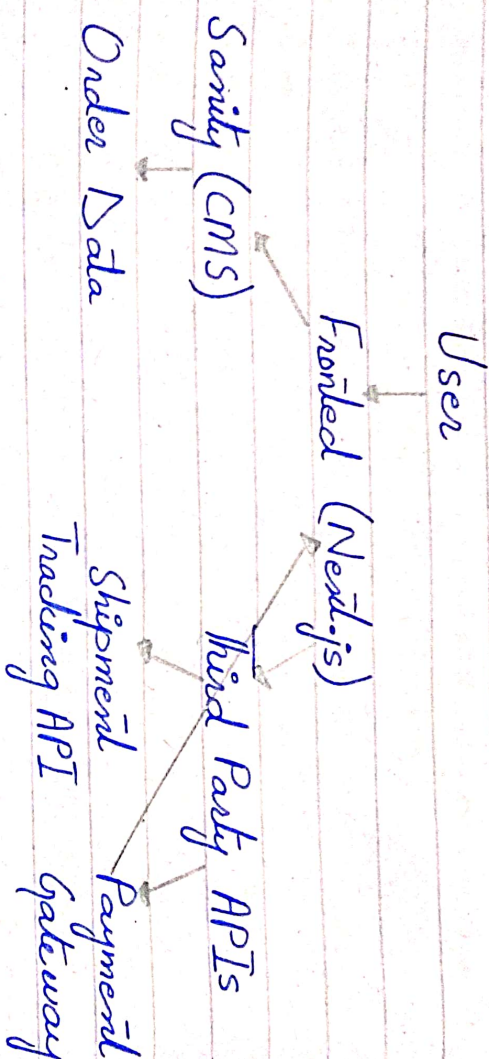 User
Fronted (Next.js)
Sanity (CMS)
Third Party APIs
Order Data
Shipment
Tracking API
Payment
Gateway